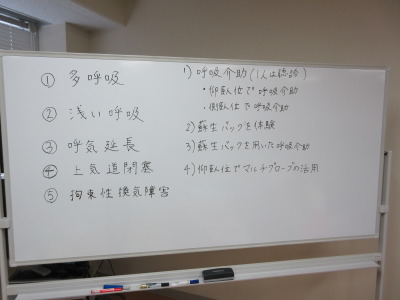 ① 多呼吸
② 浅い呼吸
③ 呼気延長
④ 上気道閉塞
⑤ 拘束性換気障害
1) 呼吸介助(1人は聴診)
・仰臥位で呼吸介助
・側臥位で呼吸介助
2) 蘇生バックを体験
3) 蘇生バックを用いた呼吸介助
4) 仰臥位でマルチグローブの活用